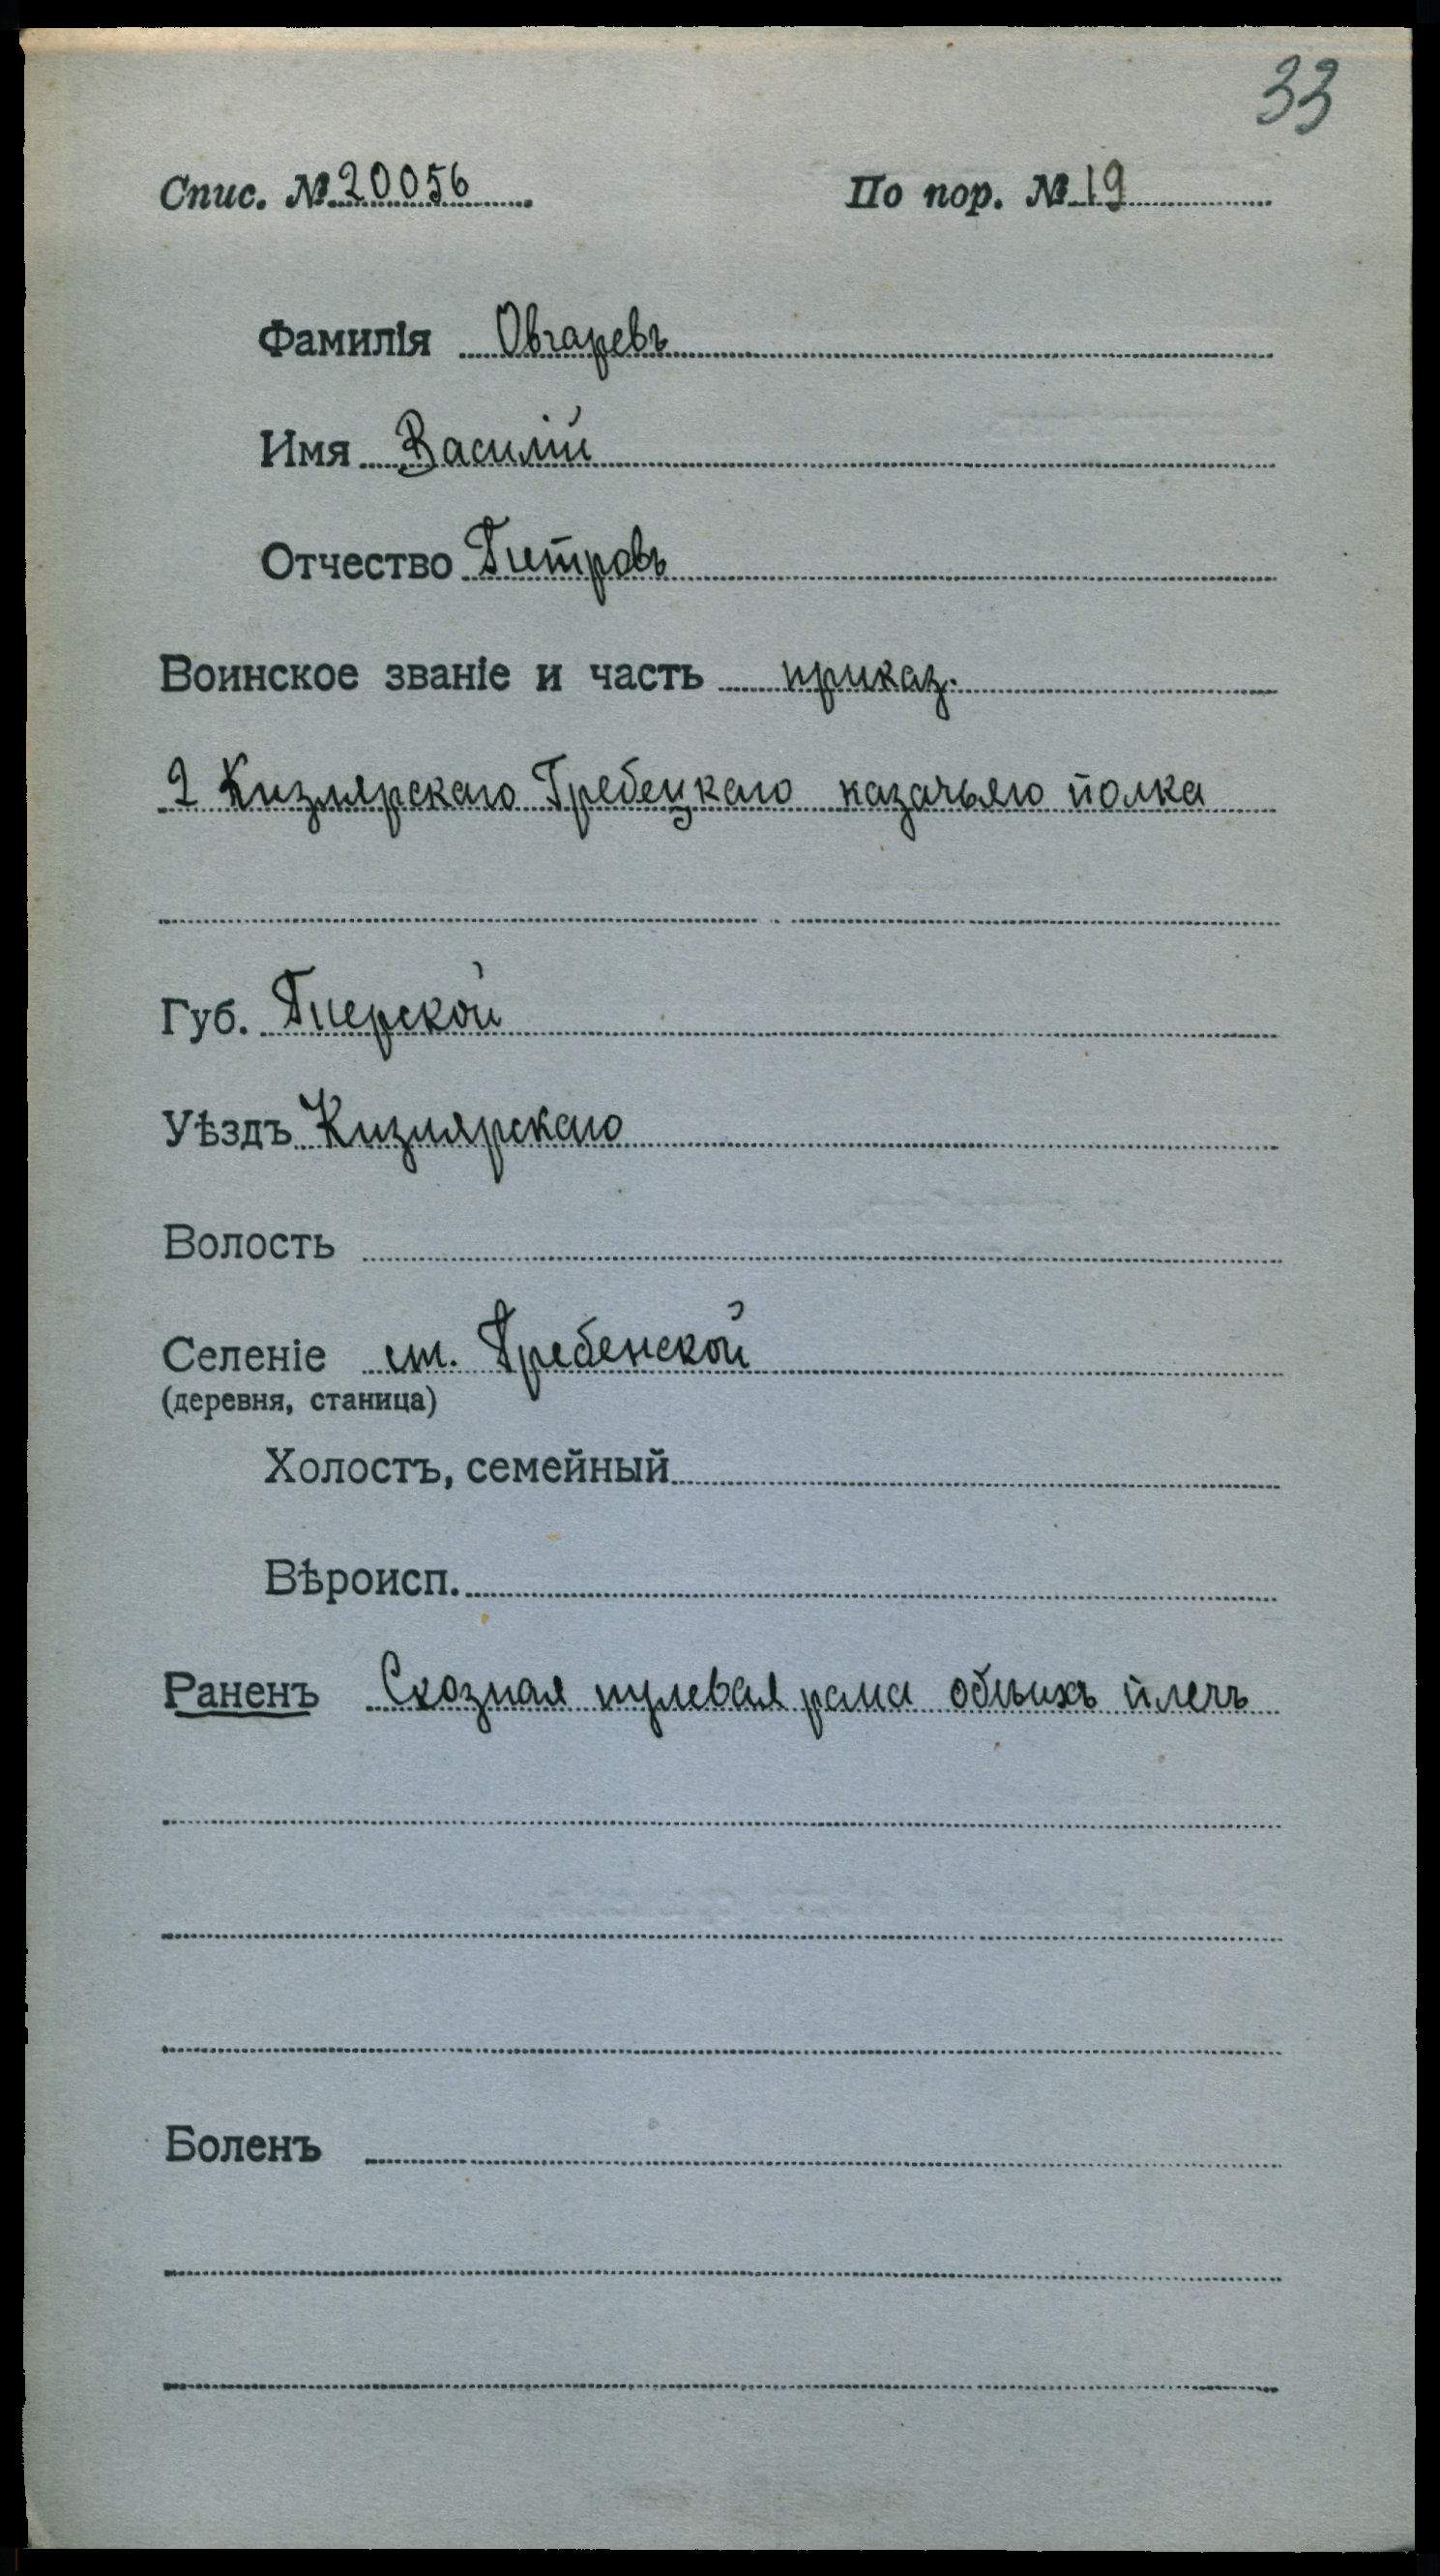 33
Спис. № 20056 По пор. № 19
Фамилія Овчаревъ
Имя Василій
Отчество Петровъ
Воинское званіе и часть приказ.
2 Кизлярскаго Гребецкаго казачьяго полка
Губ. Терской
Уѣздъ Кизлярскаго
Волость
Селеніе ст. Гребенской
(деревня, станица)
Холостъ, семейный
Вѣроисп.
Раненъ Сквозная пулевая рана обѣихъ плечъ
Боленъ